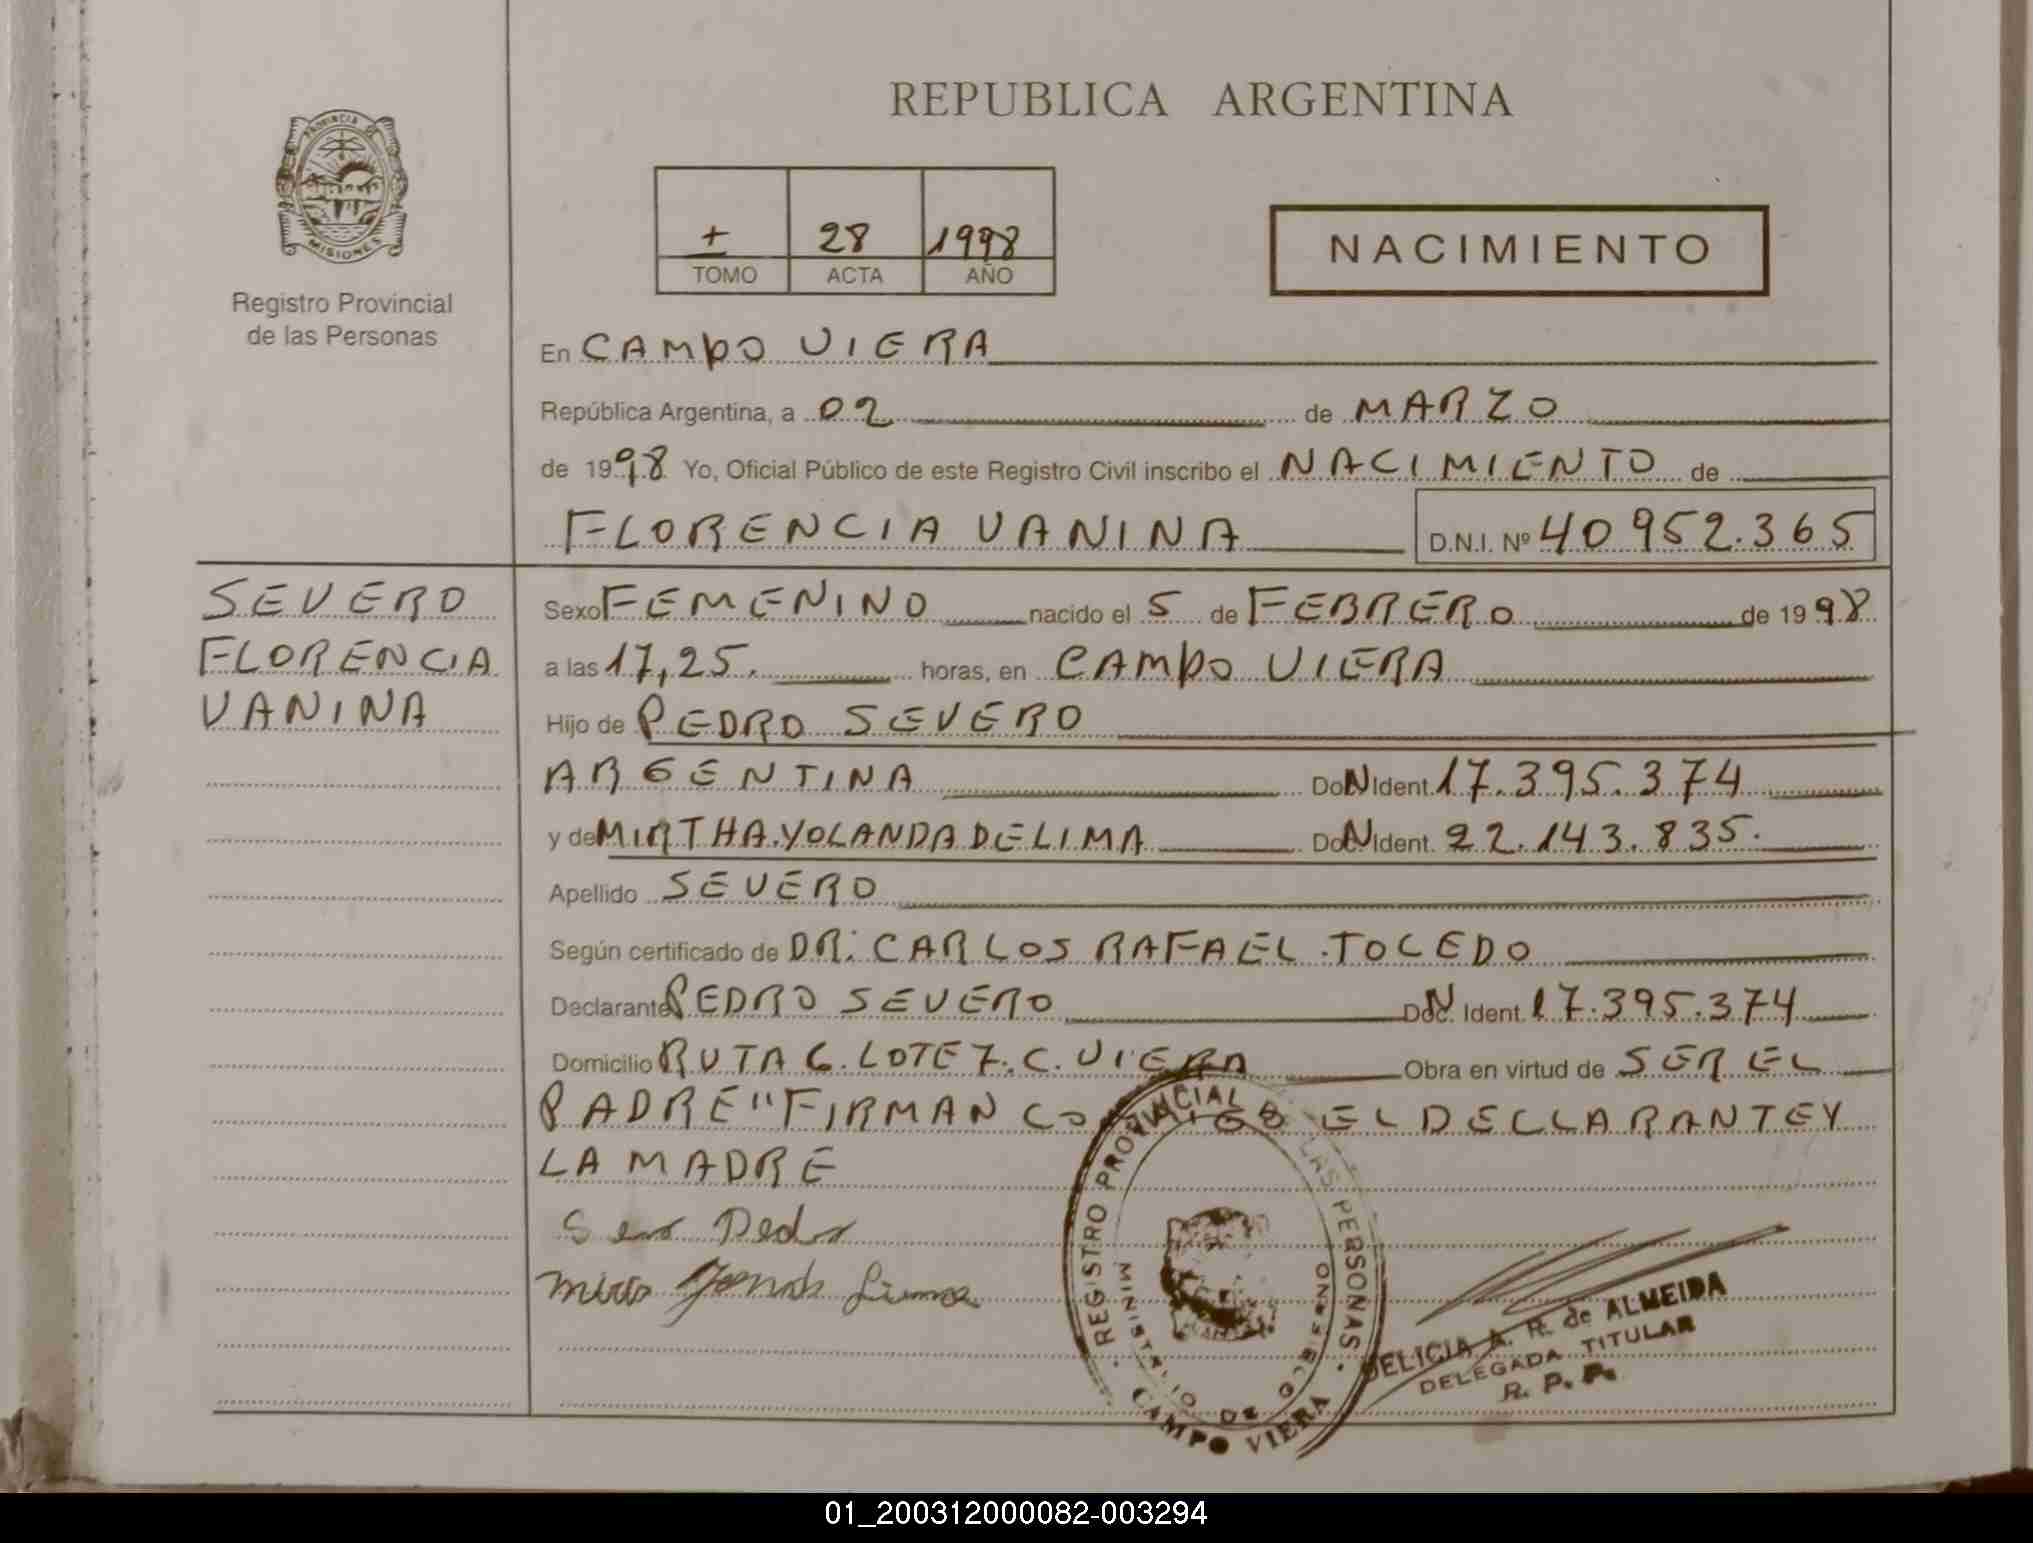 REPUBLICA ARGENTINA
PROVINCIA DE
MISIONES
Registro Provincial
de las Personas
I 28 1998
TOMO ACTA AÑO
NACIMIENTO
En CAMPO VIERA
República Argentina, a 02 de MARZO
de 1998 Yo, Oficial Público de este Registro Civil inscribo el NACIMIENTO de
FLORENCIA VANINA D.N.I. Nº 40952.365
SEVERO
FLORENCIA
VANINA
Sexo FEMENINO nacido el 5 de FEBRERO de 1998
a las 17,25. horas, en CAMPO VIERA
Hijo de PEDRO SEVERO
ARGENTINA Doc. Ident. 17.395.374
y de MIRTHA YOLANDA DE LIMA Doc. Ident. 22.143.835.
Apellido SEVERO
Según certificado de DR. CARLOS RAFAEL TOLEDO
Declarante PEDRO SEVERO Doc. Ident. 17.395.374
Domicilio RUTA 6. LOTE 7. C. VIERA Obra en virtud de SER EL
PADRE "FIRMAN CONMIGO EL DECLARANTE Y
LA MADRE
Pedro
Lima
REGISTRO PROVINCIAL DE LAS PERSONAS
MINISTERIO DE GOBIERNO
CAMPO VIERA
DELICIA A. R. de ALMEIDA
DELEGADA TITULAR
R. P. P.
01_200312000082-003294